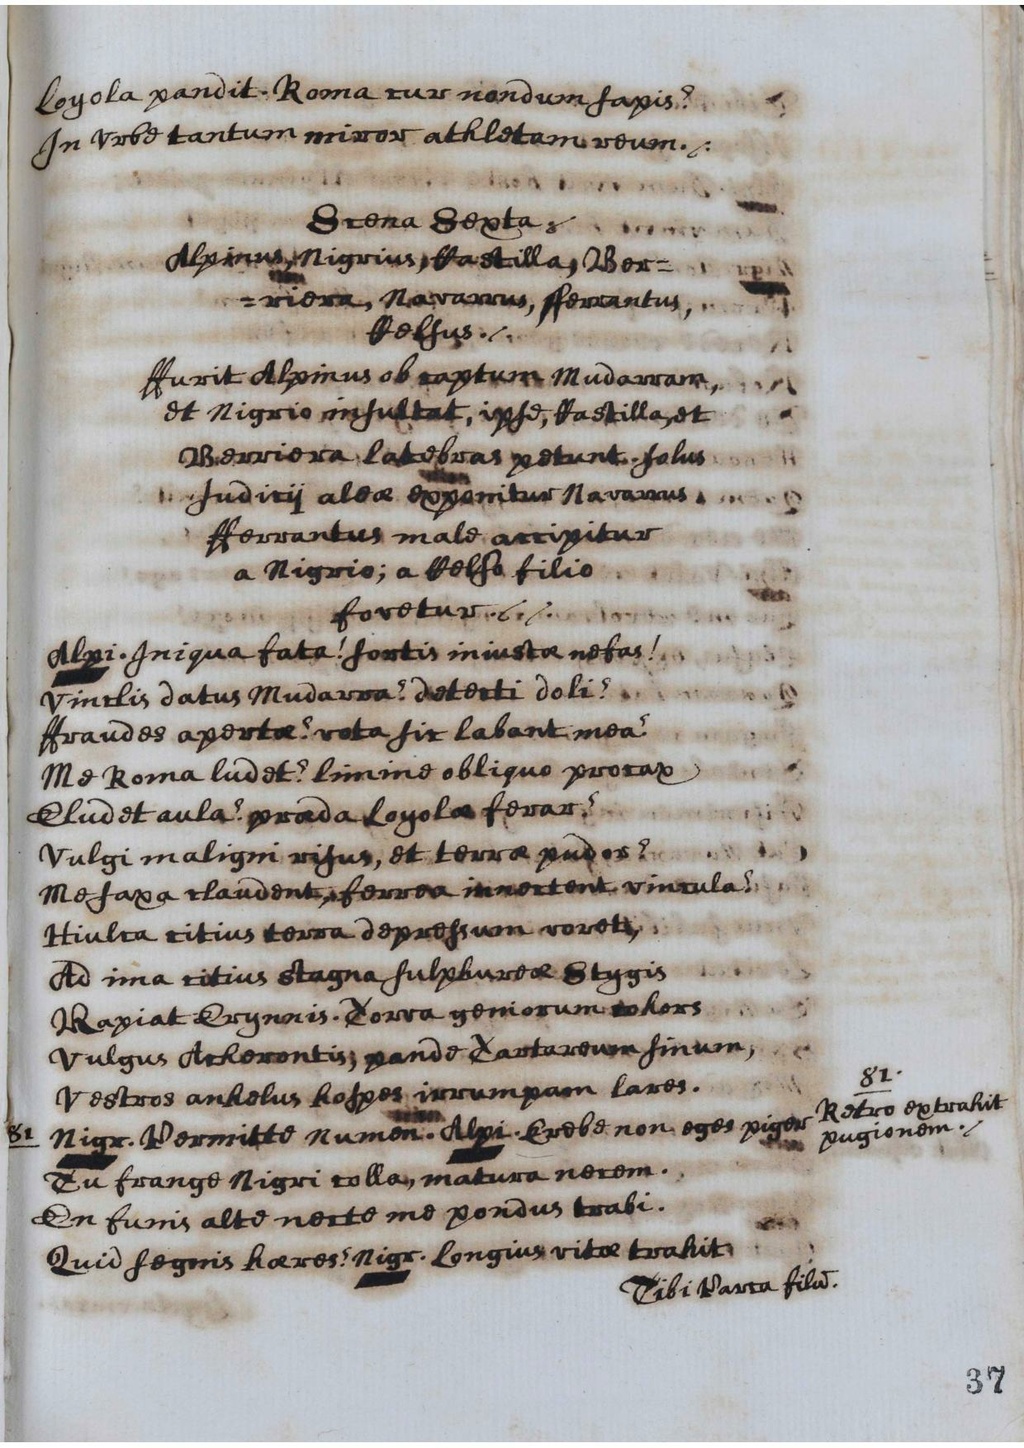 Loyola pandit. Roma cur nondum sapis?
In Vrbe tantum miror athletam reum./.
Scena Sexta./
Alpinus, Nigrius, Castilla, Ber=
=riera, Navarrus, fferrantus,
Celsus./.
ffurit Alpinus ob captum Mudarram,
et Nigrio insultat, ipse, Castilla, et
Berriera latebras petunt. solus
Judicij aleæ exponitur Navarrus
fferrantus male accipitur
a Nigrio; a Celso filio
fovetur./.
Alpi. Iniqua fata! sortis iniustæ nefas!
Vinclis datus Mudarra? detecti doli?
ffraudes apertæ? vota sic labant mea?
Me Roma ludet? limine obliquo procax
Eludet aula? præda Loyolæ ferar?
Vulgi maligni risus, et terræ pudor?
Me saxa claudent, ferrea innectent vincula?
Hiulca citius terra depressum voret,
Ad ima citius stagna sulphureæ Stygis
Rapiat Erynnis. Torva geniorum cohors
Vulgus Acherontis, pande Tartareum sinum,
Vestros anhelus hospes irrumpam lares.
81 Nigr. Permitte numen. Alpi. Crebe non eges piger
81.
Retro extrahit
pugionem./
Tu frange Nigri colla, matura necem.
En funis alte necte me pondus trabi.
Quid segnis hæres? Nigr. Longius vitæ trahit
Tibi Parca filū.
37